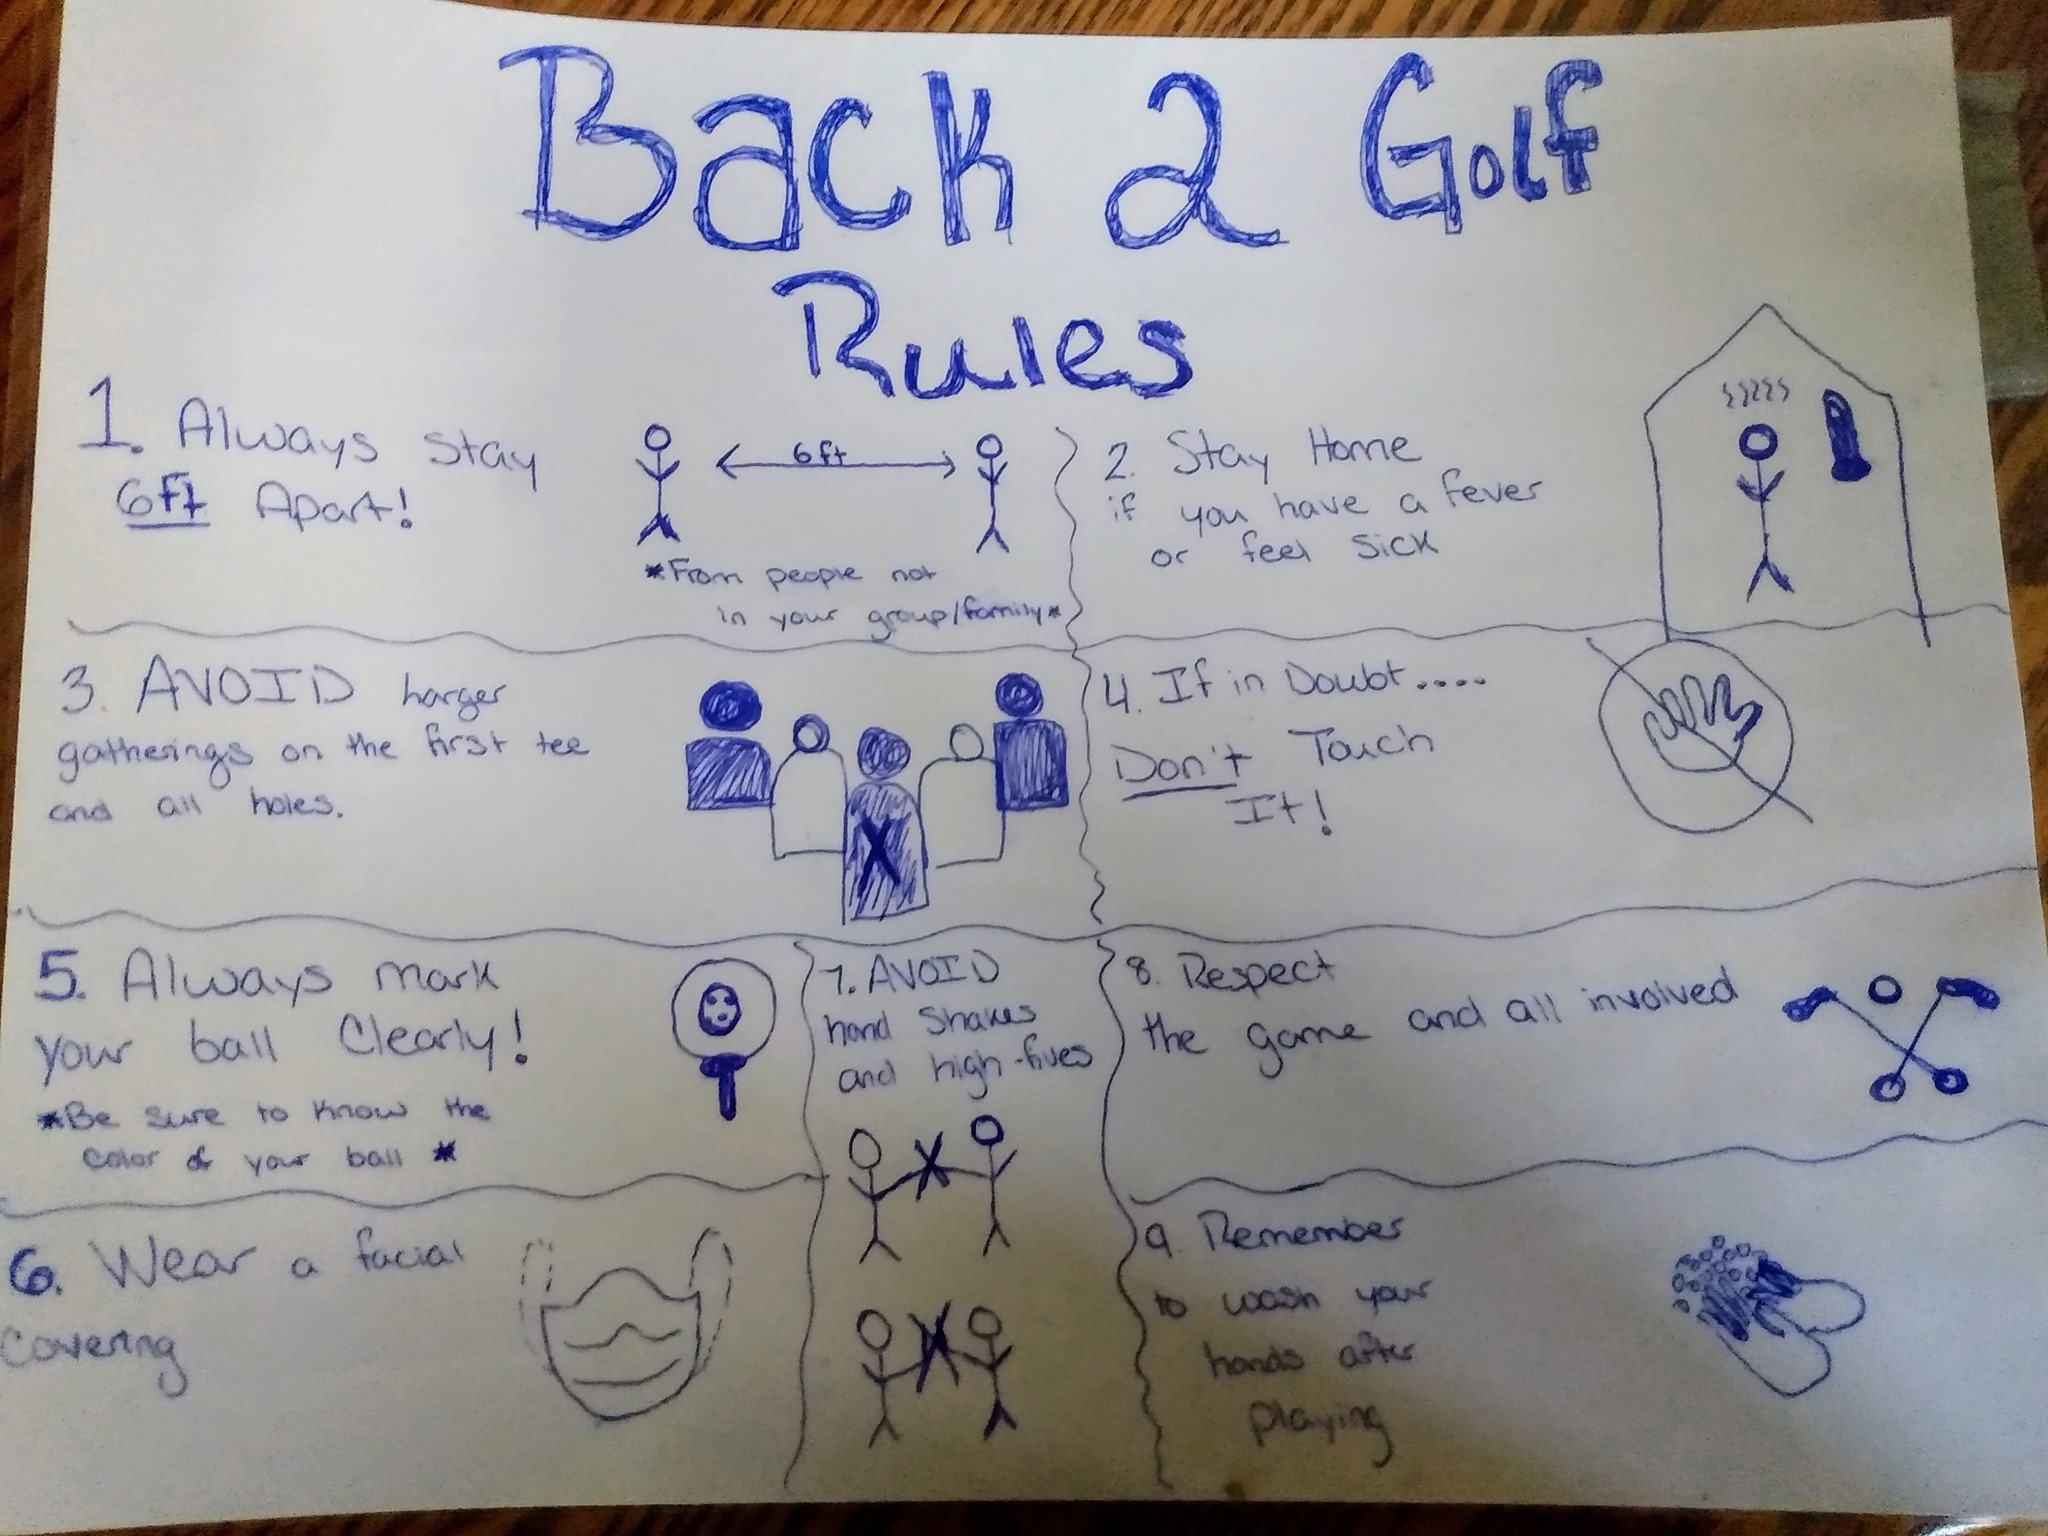 Back 2 Golf
Rules
1. Always stay
6ft Apart!
6ft
*From people not
in your group/family*
2. Stay Home
if you have a fever
or feel sick
3. AVOID larger
gatherings on the first tee
and all holes.
4. If in Doubt....
Don't Touch
It!
5. Always mark
your ball Clearly!
*Be sure to know the
color of your ball *
6. Wear a facial
covering
7. AVOID
hand shakes
and high-fives
8. Respect
the game and all involved
9. Remember
to wash your
hands after
playing